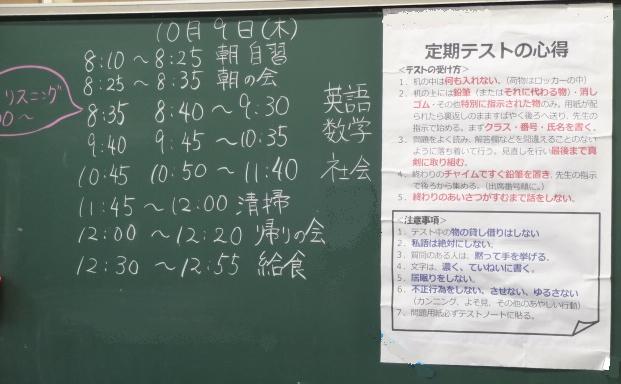 10月9日(木)
8:10 〜 8:25 朝自習
8:25 〜 8:35 朝の会
リスニング
8:35 8:40 〜 9:30 英語
9:40 9:45 〜 10:35 数学
10:45 10:50 〜 11:40 社会
11:45 〜 12:00 清掃
12:00 〜 12:20 帰りの会
12:30 〜 12:55 給食
定期テストの心得
<テストの受け方>
1. 机の中は何も入れない。(荷物はロッカーの中)
2. 机の上には鉛筆(またはそれに代わる物)・消し
ゴム・その他特別に指示された物のみ。用紙が配
られたら裏返しのまますばやく後ろへ送り、先生の
指示で始める。まずクラス・番号・氏名を書く。
3. 問題をよく読み、解答欄などを間違えることのない
ように落ち着いて行う。見直しを行い最後まで真
剣に取り組む。
4. 終わりのチャイムですぐ鉛筆を置き、先生の指示
で後ろから集める。(出席番号順に。)
5. 終わりのあいさつがすむまで話をしない。
<注意事項>
1. テスト中の物の貸し借りはしない
2. 私語は絶対にしない。
3. 質問のある人は、黙って手を挙げる。
4. 文字は、濃く、ていねいに書く。
5. 居眠りをしない。
6. 不正行為をしない、させない、ゆるさない
(カンニング、よそ見、その他のあやしい行動)
7. 問題用紙必ずテストノートに貼る。